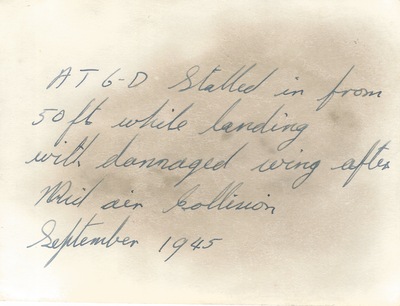 AT 6-D Stalled in from
50 ft while landing
with dammaged wing after
Mid air Collision
September 1945